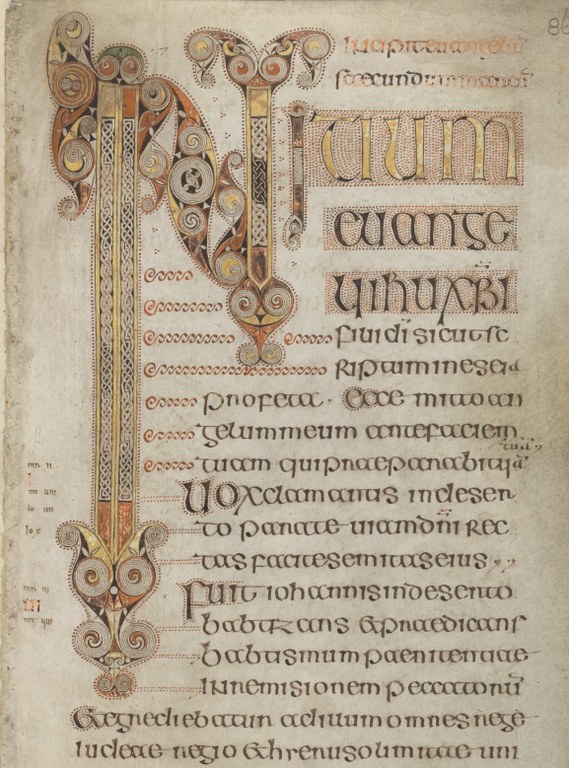 86
Incipit euangeliū
secundum
INITIUM
euange
lii ihu xp̄i
filii di sicut sc
riptum in eseia
profeta · Ecce mitto an
gelum meum ante faciem
tuam qui praeparabit uiā
tuā
Uox clamantis in deser
to parate uiam dn̄i rec
tas facite semitas eius
Fuit iohannis in deserto
babtizans & praedicans
babtismum paenitentiae
in remisionem peccatorū
& egrediebatur ad illum omnes rege
iudeae regio & hierusolimitae uni